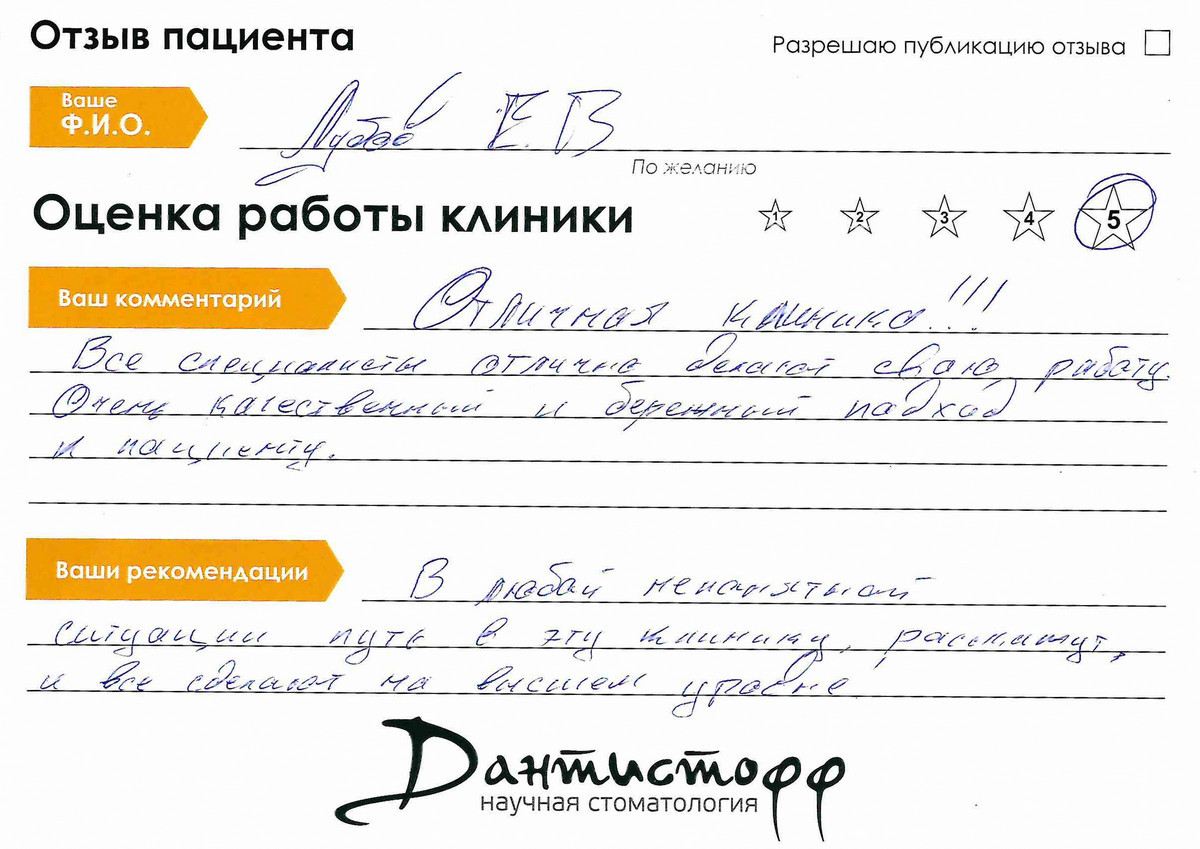 Отзыв пациента
Разрешаю публикацию отзыва
Ваше
Ф.И.О.
Е.В
По желанию
Оценка работы клиники
1 2 3 4 5
Ваш комментарий
Отличная клиника!!!
Все специалисты отлично делают свою работу.
Очень качественный и бережный подход
к пациенту.
Ваши рекомендации
В любой непонятной
ситуации путь в эту клинику, расскажут,
и все сделают на высшем уровне
Дантистофф
научная стоматология